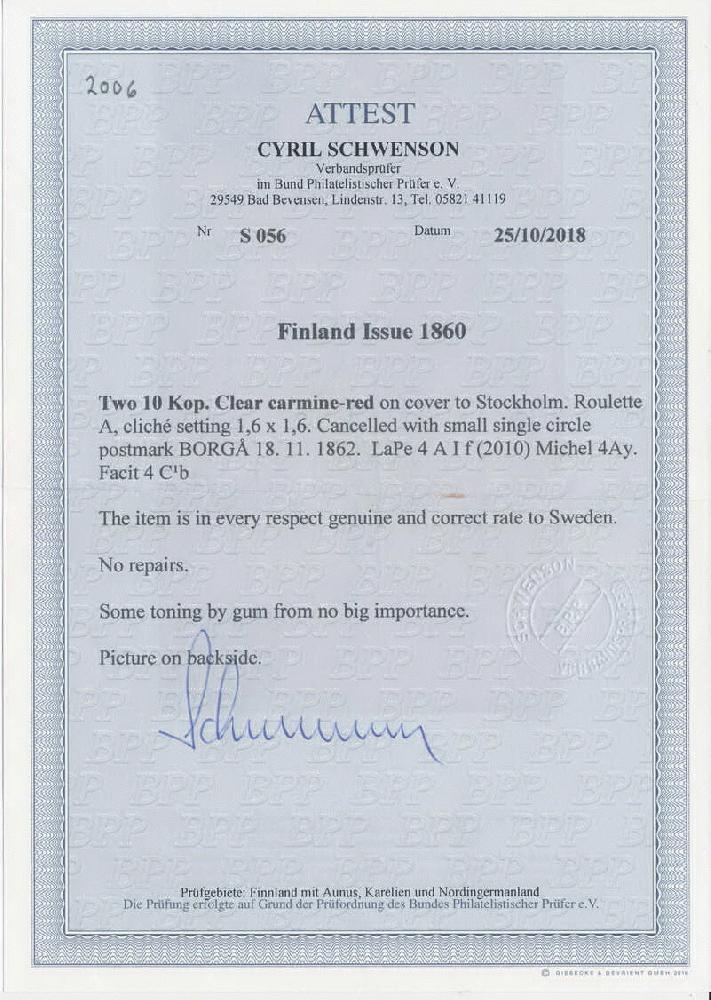 2006
ATTEST
CYRIL SCHWENSON
Verbandsprüfer
im Bund Philatelistischer Prüfer e. V.
29549 Bad Bevensen, Lindenstr. 13, Tel. 05821 41119
Nr S 056 Datum 25/10/2018
Finland Issue 1860
Two 10 Kop. Clear carmine-red on cover to Stockholm. Roulette
A, cliché setting 1,6 x 1,6. Cancelled with small single circle
postmark BORGÅ 18. 11. 1862. LaPe 4 A I f (2010) Michel 4Ay.
Facit 4 C¹b
The item is in every respect genuine and correct rate to Sweden.
No repairs.
Some toning by gum from no big importance.
Picture on backside.
Prüfgebiete: Finnland mit Aunus, Karelien und Nordingermanland
Die Prüfung erfolgte auf Grund der Prüfordnung des Bundes Philatelistischer Prüfer e.V.